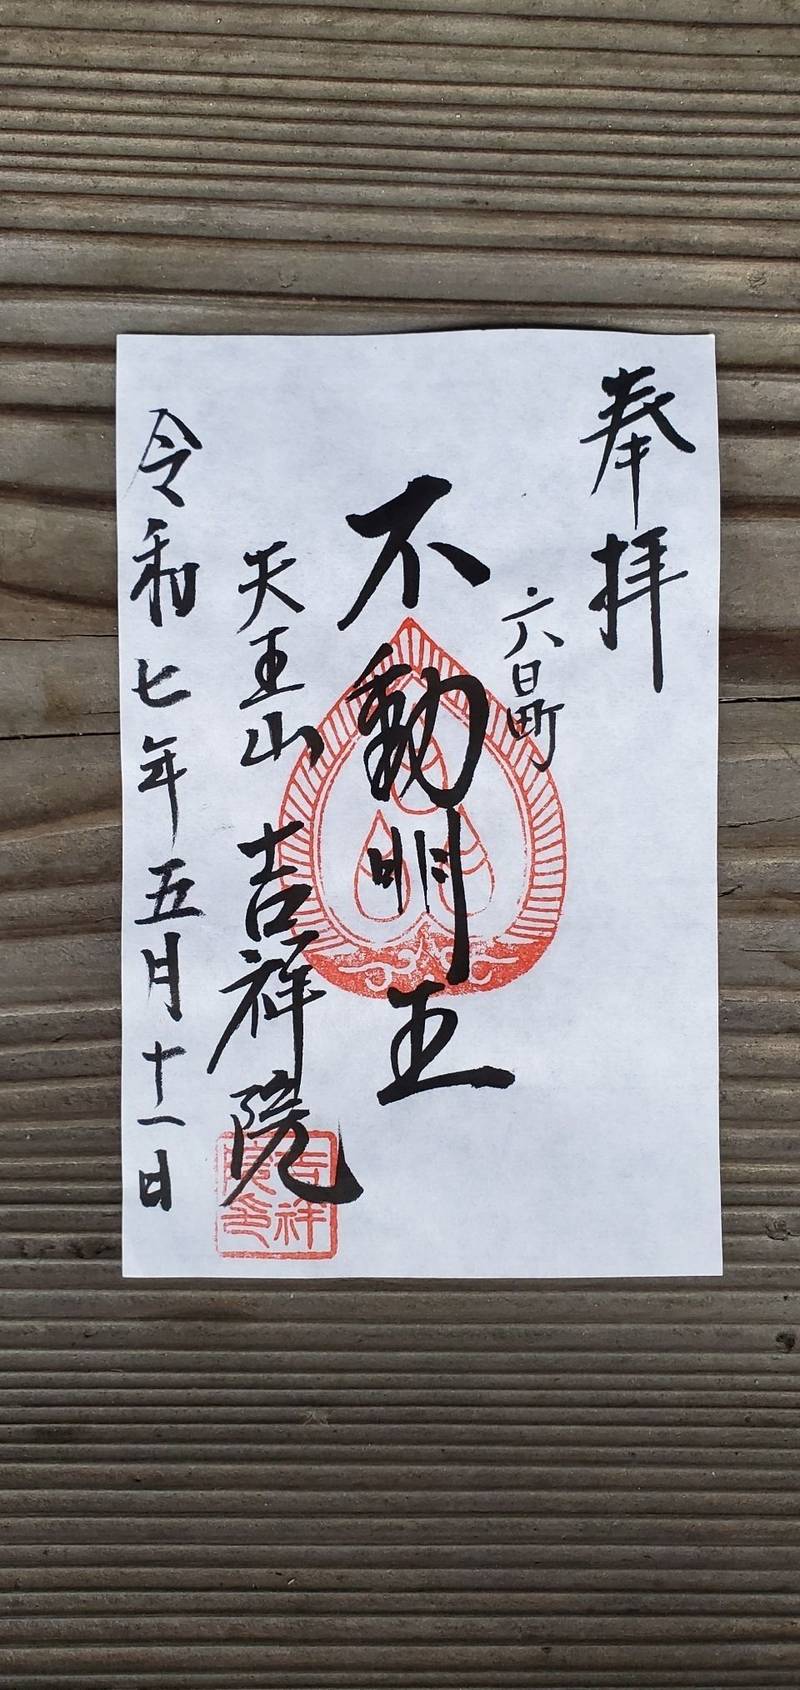 奉拝
六日町
不動明王
天王山 吉祥院
令和七年五月十一日
吉祥
院印